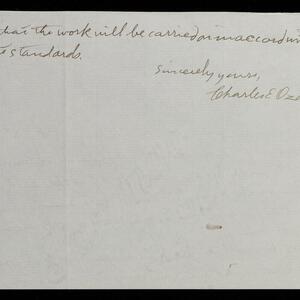 that the work will be carried on in accord wi
te standards.
Sincerely yours,
Charles E Oze